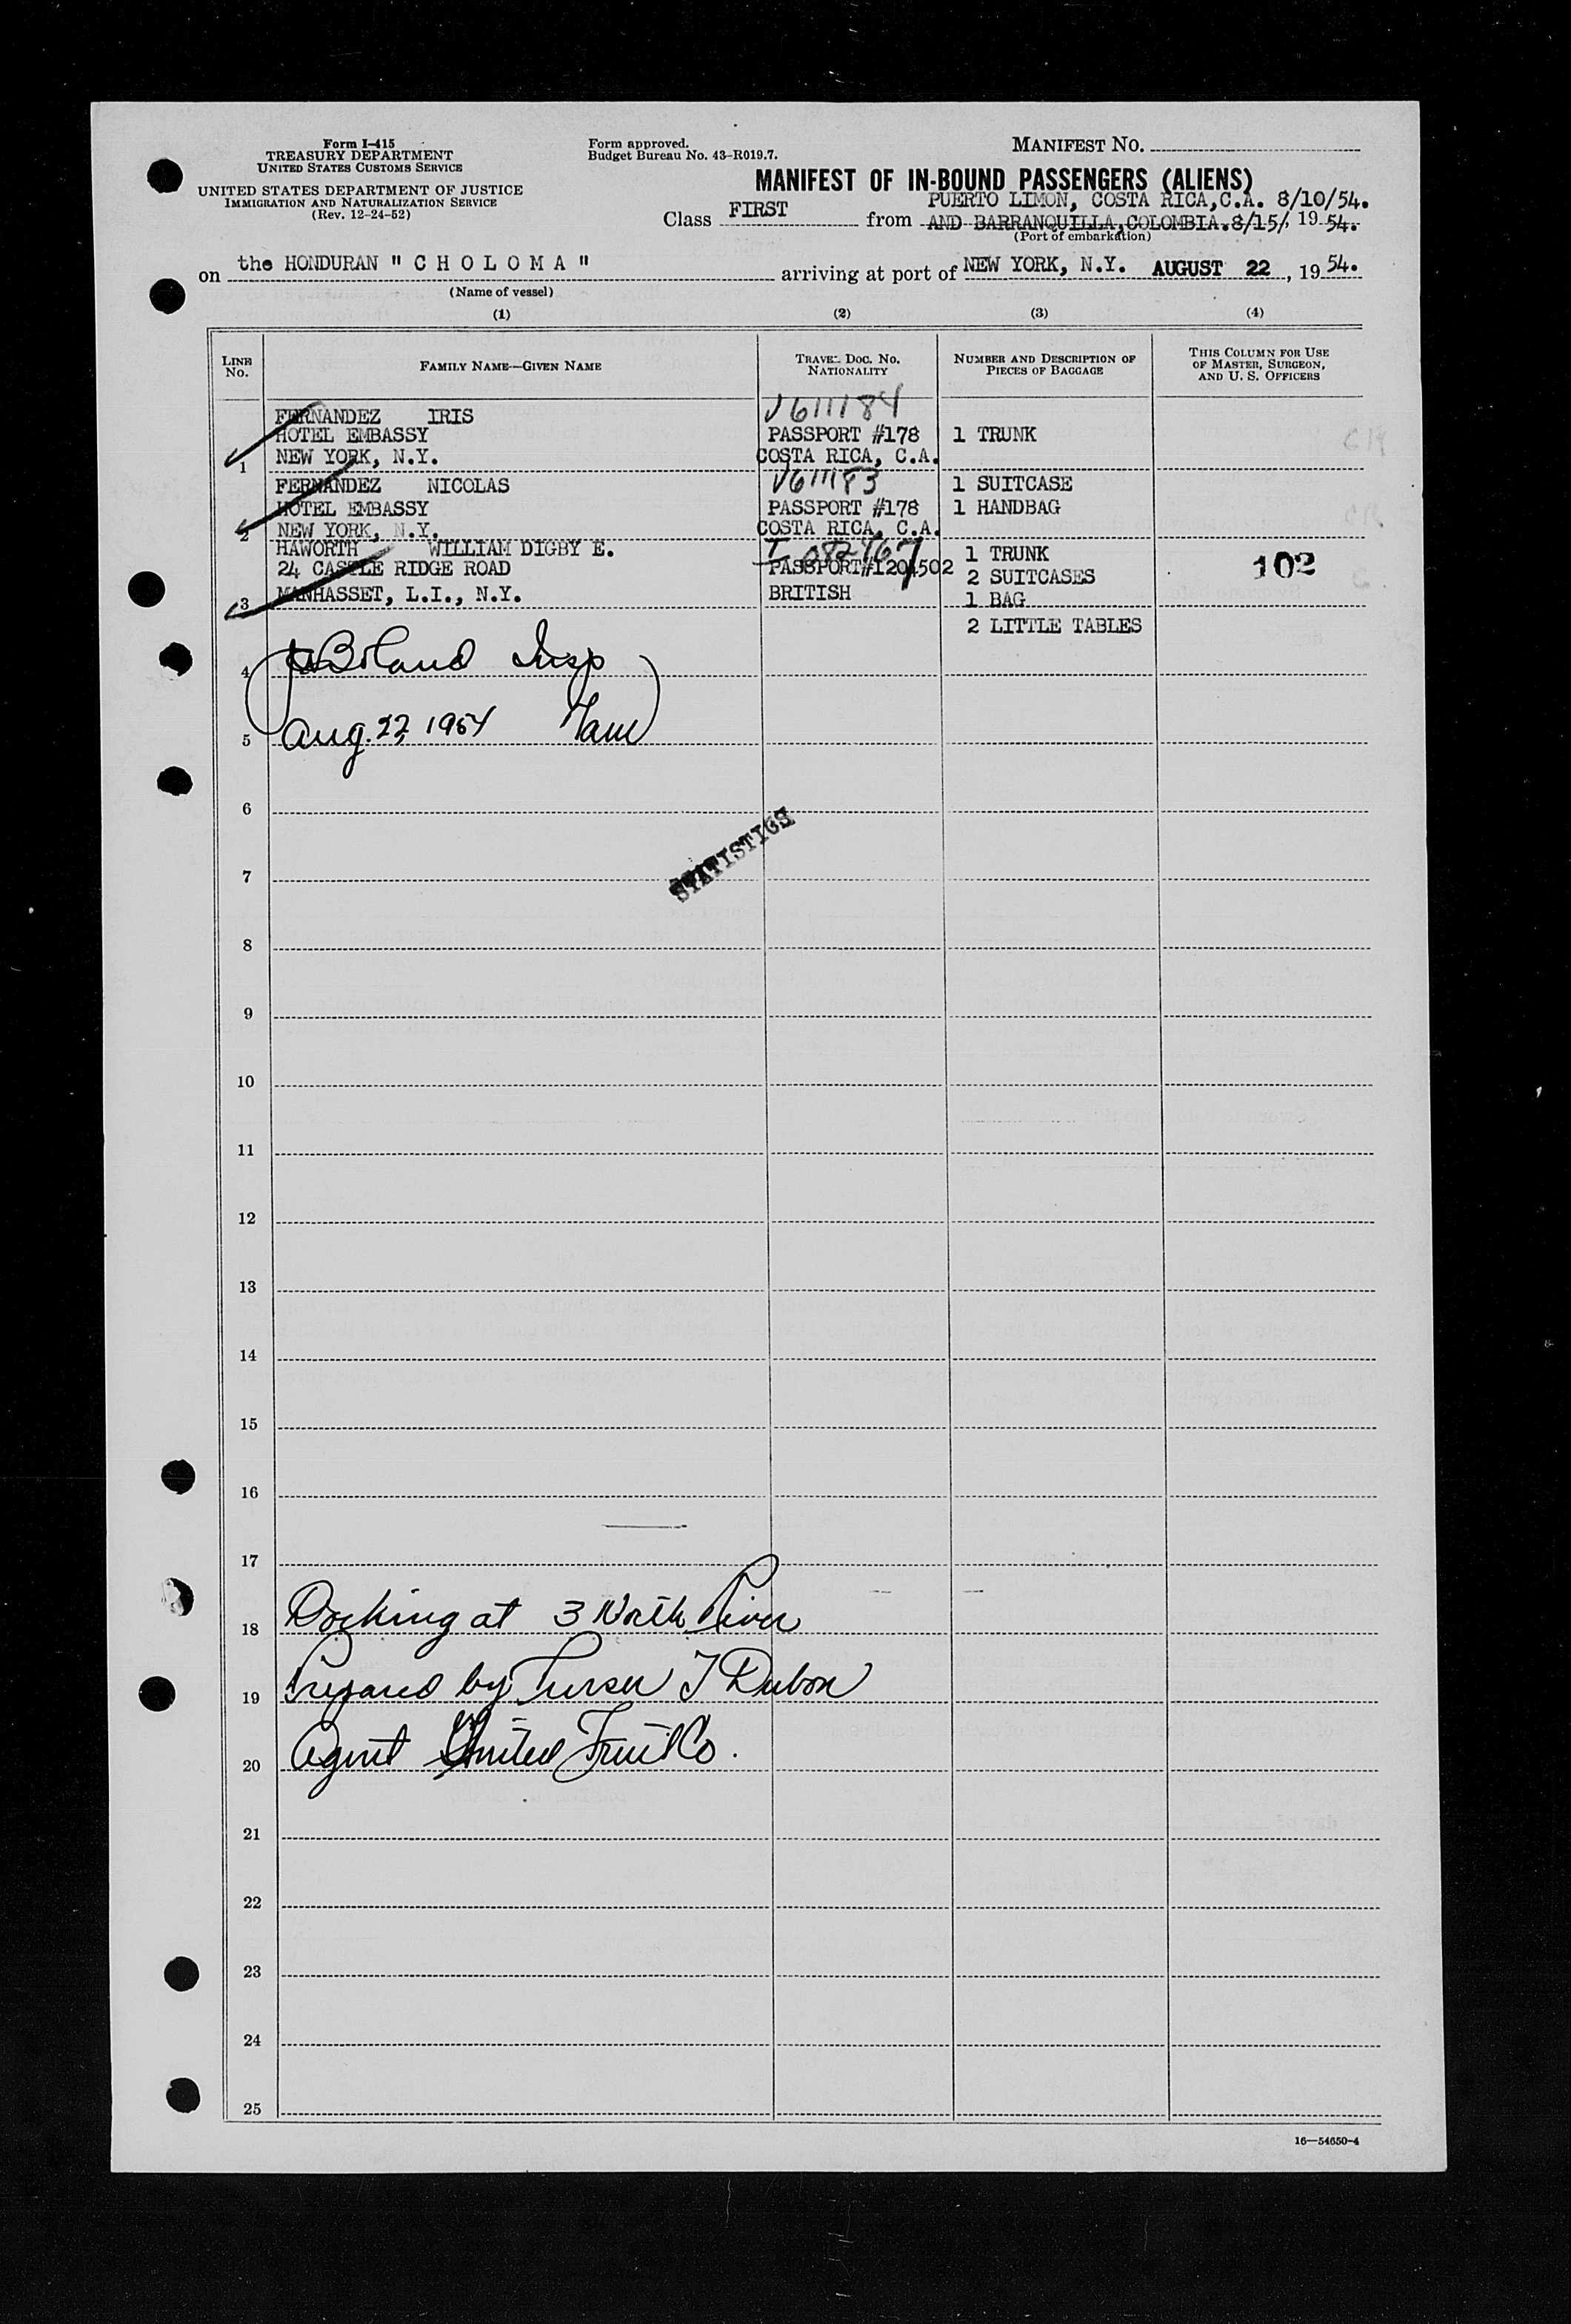 Form I-415
TREASURY DEPARTMENT
UNITED STATES CUSTOMS SERVICE
UNITED STATES DEPARTMENT OF JUSTICE
IMMIGRATION AND NATURALIZATION SERVICE
(Rev. 12-24-52)
Form approved.
Budget Bureau No. 43-R019.7.
MANIFEST NO.
MANIFEST OF IN-BOUND PASSENGERS (ALIENS)
PUERTO LIMON, COSTA RICA,C.A. 8/10/54.
Class FIRST from AND BARRANQUILLA,COLOMBIA.8/15/, 19 54.
(Port of embarkation)
on the HONDURAN " C H O L O M A " arriving at port of NEW YORK, N.Y. AUGUST 22, 19 54.
(Name of vessel)
(1) (2) (3) (4)
LINE NO.
FAMILY NAME—GIVEN NAME
TRAVEL DOC. NO.
NATIONALITY
NUMBER AND DESCRIPTION OF
PIECES OF BAGGAGE
THIS COLUMN FOR USE
OF MASTER, SURGEON,
AND U. S. OFFICERS
V611184
FERNANDEZ IRIS
HOTEL EMBASSY PASSPORT #178 1 TRUNK
1 NEW YORK, N.Y. COSTA RICA, C.A.
FERNANDEZ NICOLAS V611183 1 SUITCASE
HOTEL EMBASSY PASSPORT #178 1 HANDBAG
2 NEW YORK, N.Y. COSTA RICA, C.A.
HAWORTH WILLIAM DIGBY E. 1 TRUNK
24 CASTLE RIDGE ROAD 2 SUITCASES 102
3 MANHASSET, L.I., N.Y. BRITISH 1 BAG
2 LITTLE TABLES
4 Boland Insp
5 Aug. 22, 1954
6
STATISTICS
7
8
9
10
11
12
13
14
15
16
17
18 Docking at 3 North River
19 Prepared by Purser J Dubon
20 Agent United Fruit Co.
21
22
23
24
25
16—54650-4